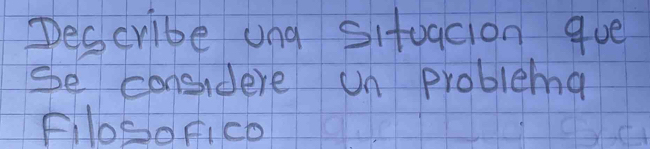 Describe una situacion que
se considere un problema
Filosofico